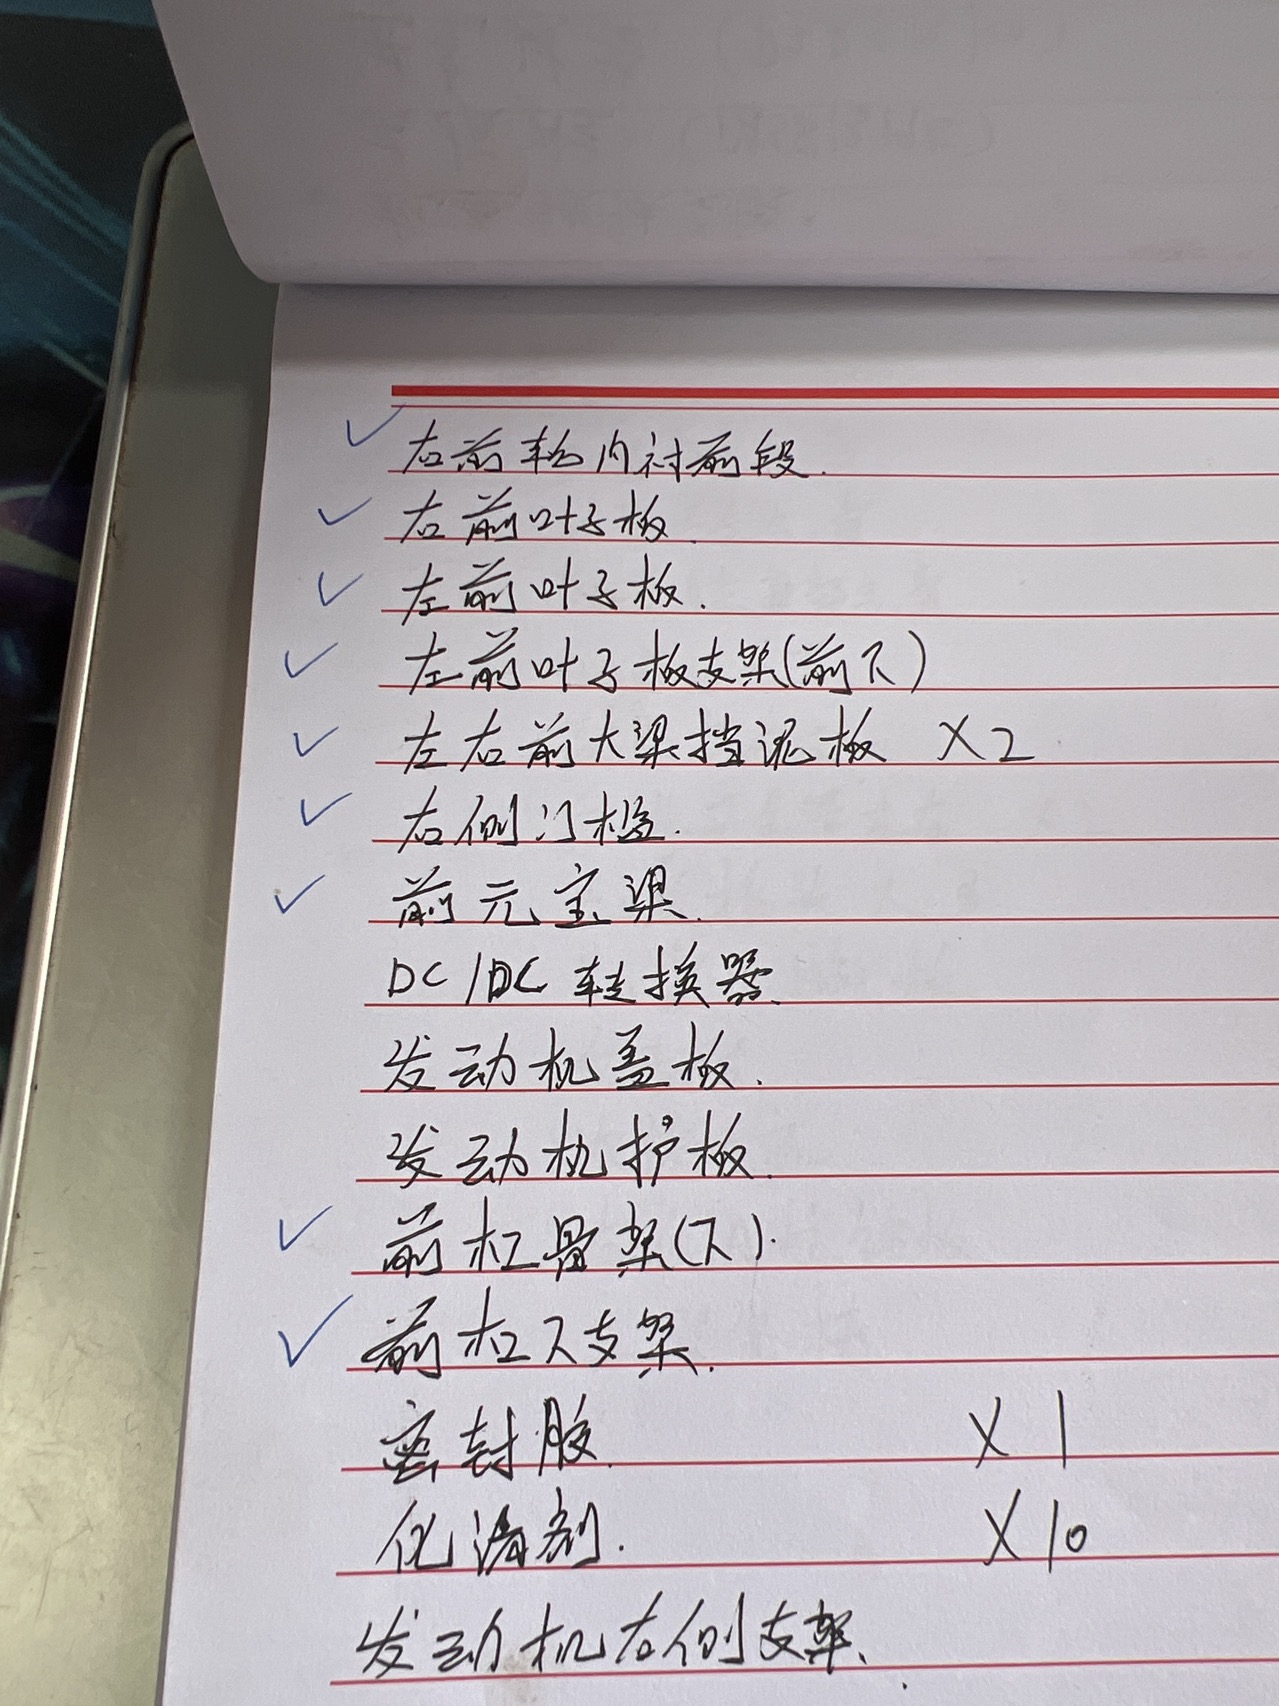 右前轮内衬前段.
右前叶子板.
左前叶子板.
左前叶子板支架(前下)
左右前大梁挡泥板 X2
右侧门槛.
前元宝梁.
DC/DC 转换器.
发动机盖板.
发动机护板.
前杠骨架(下).
前杠下支架.
密封胶. X1
化清剂. X10
发动机右侧支架.